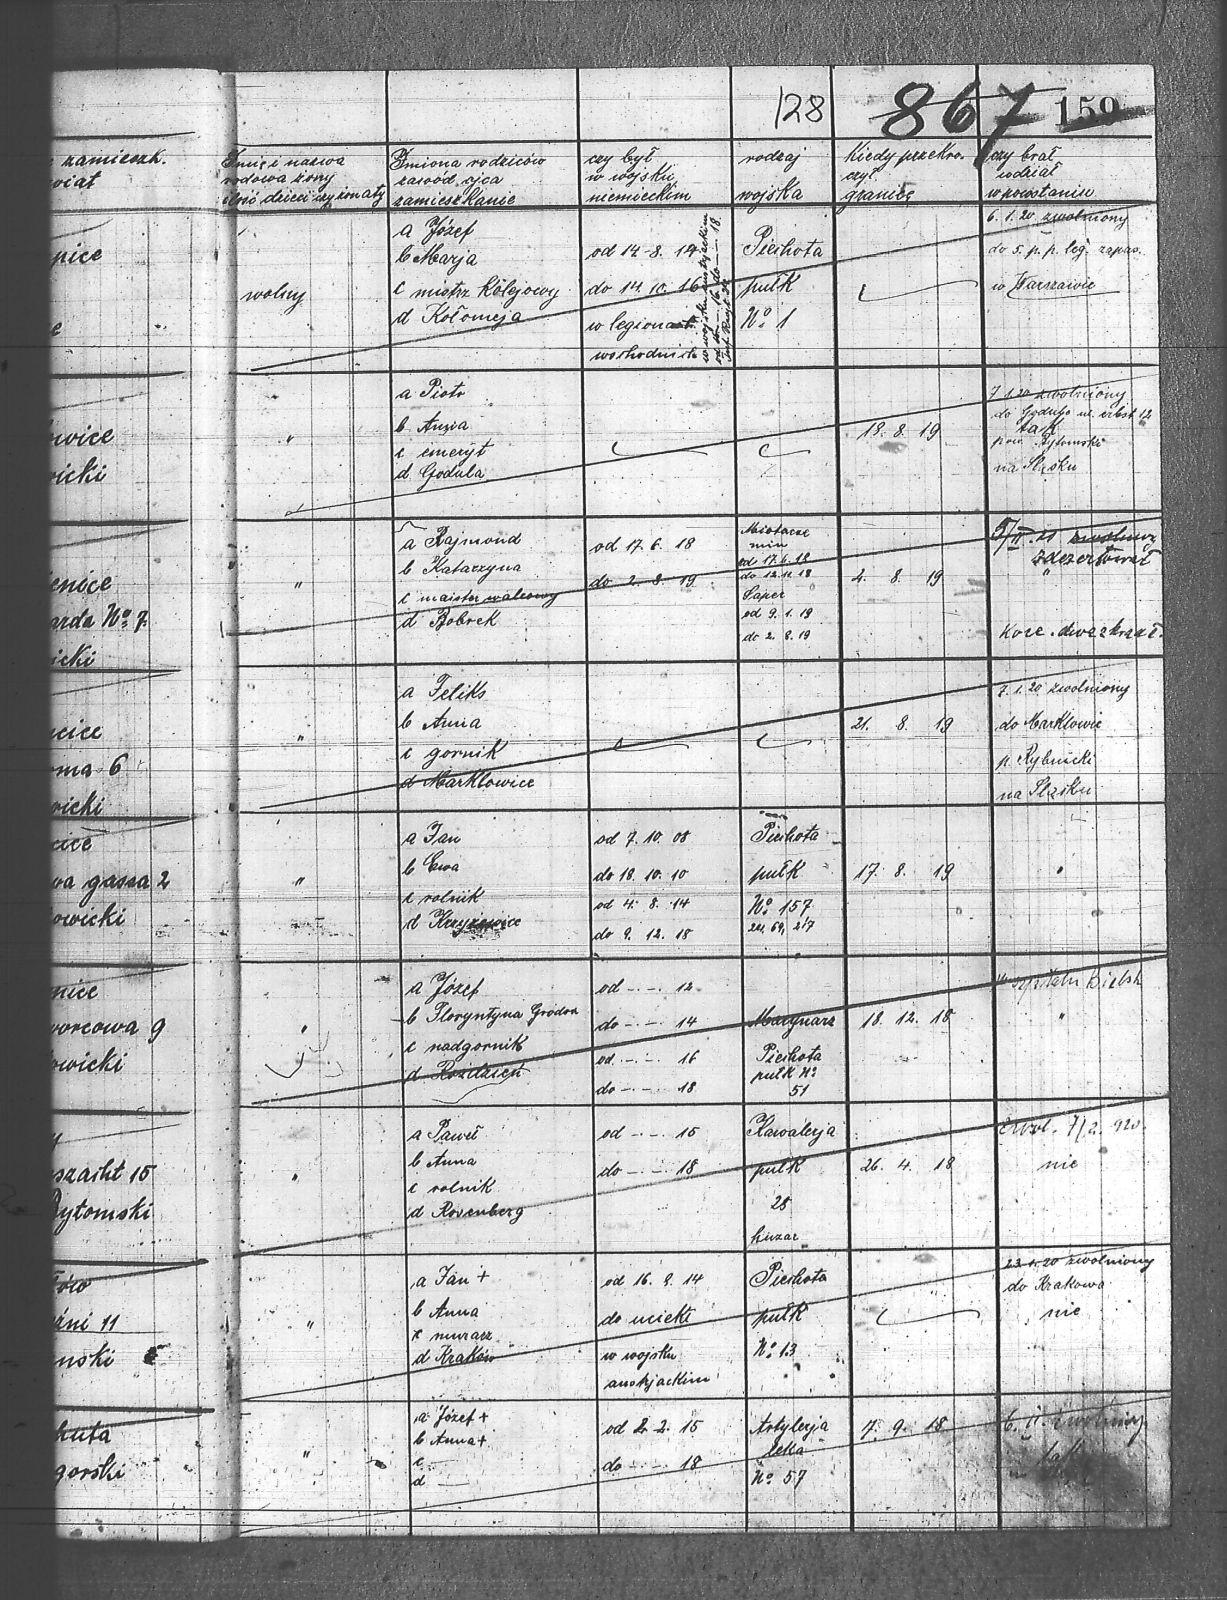 128 867 159
zamieszk.
wiat
Imię i nazwa
rodowa żony
ilość dzieci czy żonaty
Imiona rodziców
zawód ojca
zamieszkanie
czy był
w wojsku
niemieckim
rodzaj
wojska
Kiedy przekro.
czył
granicę
czy brał
udział
w powstaniu
pice
wolny
a Józef
b Marja
c mistrz Kolejowy
d Kołomeja
od 14 8. 14
do 14 10. 16
w legionach
wschodnich
Piechota
pułk
No. 1
6. 1. 20 zwolniony
do 5. p. p. leg. zapas.
w Warszawie
owice
icki
"
a Piotr
b Anna
c emeryt
d Godula
18. 8. 19
7 1. 20 zwolniony
tak
pow. Bytomski
na Śląsku
ienice
arda No. 7.
icki
"
a Rajmond
b Katarzyna
c maister walcowy
d Bobrek
od 17. 6. 18
do 2. 8. 19
Miotacze
min
od 17. 6. 18
do 12. 11. 18
Saper
od 9. 1. 19
do 2. 8. 19
4. 8. 19
zdezerterował
"
icice
ma 6
icki
"
a Feliks
b Anna
c gornik
d Marklowice
21. 8. 19
7. 1. 20 zwolniony
do Marklowic
p. Rybnicki
na Śląsku
cice
wa gassa 2
owicki
"
a Jan
b Ewa
c rolnik
d Krzyżowice
od 7. 10. 08
do 18. 10. 10
od 4. 8. 14
do 9. 12. 18
Piechota
pułk
No. 157
17. 8. 19
nice
worcowa 9
owicki
"
a Józef
b Floryntyna
c nadgornik
d Rozdzień
od - . - . 12
do - . - 14
od - . - . 16
do - . - . 18
Marynarz
Piechota
pułk No.
51
18. 12. 18
szpitalu Bielsk
"
szacht 15
Bytomski
"
a Paweł
b Anna
c rolnik
d Rosenberg
od - - . 15
do - - . 18
Kawalerja
pułk
28
huzar
26. 4. 18
zwol. 7/2. 920.
nie
11
nski
"
a Jan +
b Anna
c murarz
d Kraków
od 16. 8. 14
do uciekł
w wojsku
austrjackim
Piechota
pułk
No. 13
23. 1. 20 zwolniony
do Krakowa
nie
huta
gorski
"
a Józef +
b Anna +
c —
d —
od 2. 2. 15
do - - . 18
Artylerja
lekka
No. 57
7. 9. 18
zwolniony